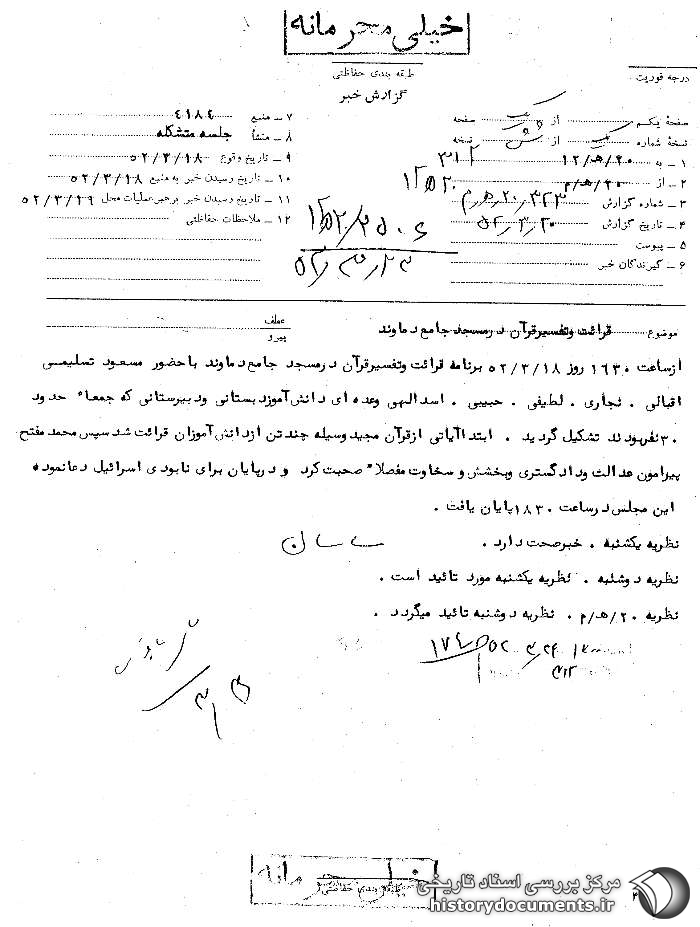 خیلی محرمانه
طبقه بندی حفاظتی
درجه فوریت
گزارش خبر
صفحه یکم از صفحه
نسخه شماره از نسخه
۱ ـ به ۲۰/ﻫ/۱۲ ۳۱۲
۲ ـ از ۲۰/ﻫ/م
۳ ـ شماره گزارش
۴ ـ تاریخ گزارش ۵۲٫۳٫۲۰
۵ ـ پیوست
۶ ـ گیرندگان خبر
۷ ـ منبع ۴۱۸۴
۸ ـ منشأ جلسه متشکله
۹ ـ تاریخ وقوع ۵۲/۳/۱۸
۱۰ ـ تاریخ رسیدن خبر به منبع ۵۲/۳/۱۸
۱۱ ـ تاریخ رسیدن خبر برهبر عملیات محل ۵۲/۳/۱۹
۱۲ ـ ملاحظات حفاظتی
موضوع قرائت وتفسیرقرآن درمسجد جامع دماوند
عطف
پیرو
ازساعت ۱۶۳۰ روز ۵۲/۳/۱۸ برنامه قرائت وتفسیرقرآن درمسجد جامع دماوند باحضور مسعود تسلیمی
اقبالی . نجاری . لطیفی . حبیبی . اسدالهی وعده ای دانش آموزدبستانی ودبیرستانی که جمعاً حدود
۳۰نفربودند تشکیل گردید . ابتدا آیاتی ازقرآن مجید وسیله چندتن ازدانش آموزان قرائت شد سپس محمد مفتح
پیرامون عدالت ودادگستری وبخشش و سخاوت مفصلاً صحبت کرد و درپایان برای نابودی اسرائیل دعانموده
این مجلس درساعت ۱۸۳۰پایان یافت .
نظریه یکشنبه . خبرصحت دارد . ساسان
نظریه دوشنبه . نظریه یکشنبه مورد تائید است .
نظریه ۲۰/ﻫ/م . نظریه دوشنبه تائید میگردد .
طبقه بندی حفاظتی
مرکز بررسی اسناد تاریخی
historydocuments.ir